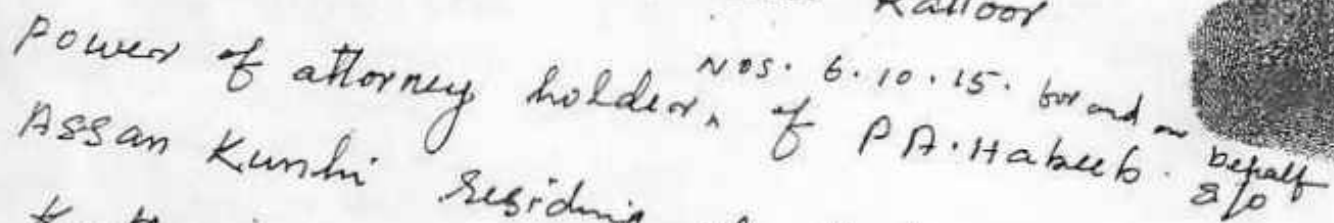 Kalloor
Power of attorney holder, NOS. 6.10.15. for and on behalf
of P.A. Habeeb. S/o
Assan Kunhi residing